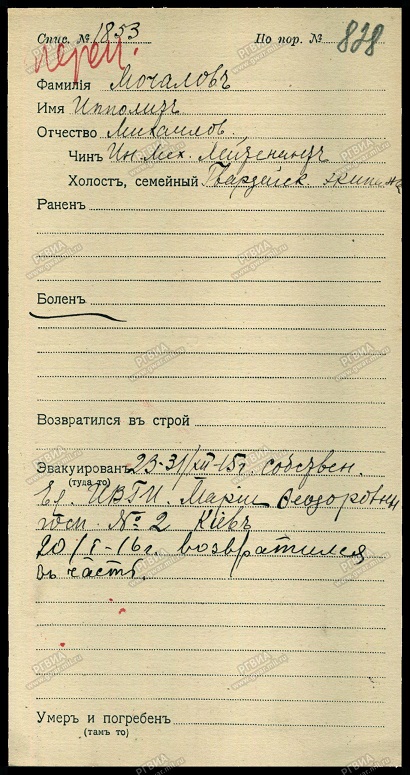 Спис. № 1853 По пор. № 828
перем.
Фамилія Мочаловъ
Имя Ипполитъ
Отчество Михаилов.
Чинъ Ин. Мех. Лейтенантъ
Холостъ, семейный Гвардейск экипажа
Раненъ
Боленъ
Возвратился въ строй
Эвакуированъ 23-31/XII-15г. собствен.
(туда то)
Ея ИВГИ. Маріи Ѳеодоровны
госп. № 2 Кіевъ
20/I-16г. возвратился
въ часть.
Умеръ и погребенъ
(тамъ то)
РГВИА
www.ргвиа.ru